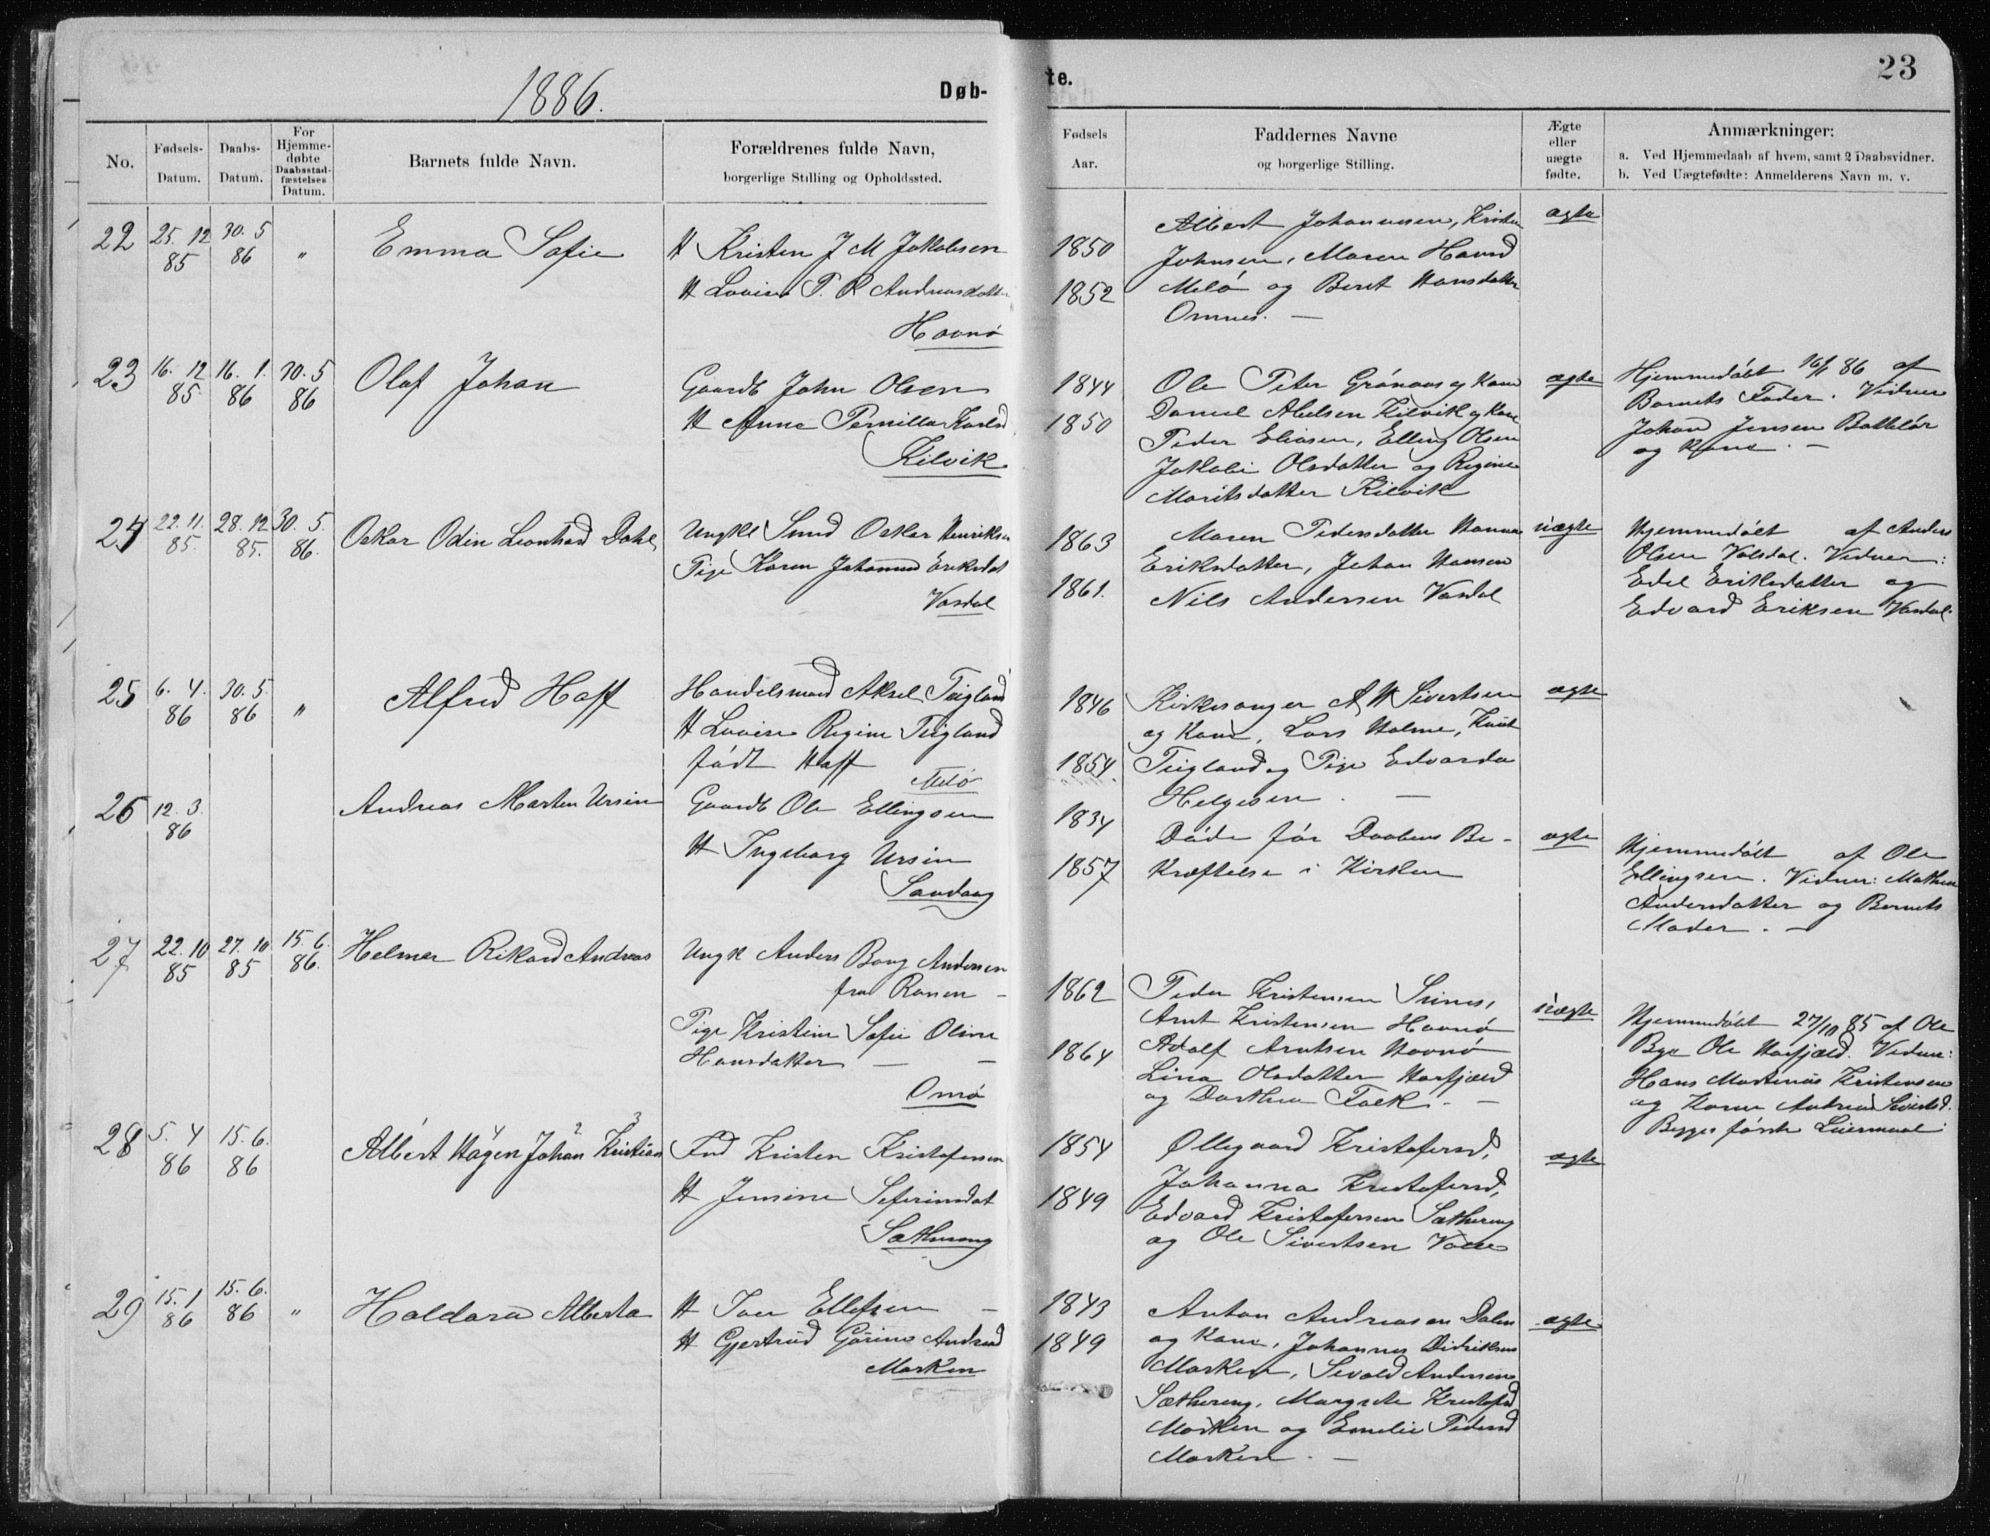 1886.
Døb-
te.
23
No.
Fødsels-
Datum.
Daabs-
Datum.
For
Hjemme-
døbte
Daabsstad-
fæstelses
Datum.
Barnets fulde Navn.
Forældrenes fulde Navn,
borgerlige Stilling og Opholdssted.
Fødsels
Aar.
Faddernes Navne
og borgerlige Stilling.
Ægte
eller
uægte
fødte.
Anmærkninger:
a. Ved Hjemmedaab af hvem, samt 2 Daabsvidner.
b. Ved Uægtefødte: Anmelderens Navn m. v.
22
25. 12
85
30. 5
86
"
Emma Sofie
H Kristen J M Jakobsen
H Lovise P. R Andreasdatter
Havnø
1850
1852
Albert Johannesen,
Johnsen, Maren Hansd
Melø og Beret Hansdatter
Omnes. —
ægte
23
16. 12
85
16. 1.
86
30. 5
86
Olaf Johan
Gaardb John Olsen
H Anne Pernilla Karlsd
Kilvik
1844
1850
Ole Peter Grønaas og Kone
Daniel Abelsen Kilvik og Kone
Peder Eliasen, Elling Olsen
Jakobi Olsdatter og Regine
Maritsdatter Kilvik
ægte
Hjemmedøbt 16/1 86 af
Barnets Fader. Vidner
Johan Jensen
og Kone. —
24
22. 11.
85.
28. 12
85.
30. 5.
86.
Oskar Odin Leonhard Dahl
Ungkl Smed Oskar Henriksen
Pige Karen Johanna Eriksdat
Vasdal
1863
1861.
Maren Pedersdatter Hanna
Eriksdatter, Johan Hansen
Nils Andersen Vasdal
uægte
Hjemmedøbt af Anders
Olsen Valsdal. Vidner:
Edel Eriksdatter og
Edvard Eriksen Vasdal.
25
6. 4.
86
30. 5.
86
"
Alfred Haff
Handelsmand Aksel Teigland
H Lovise Regine Teigland
født Haff
Melø
1846
1854.
Kirkesanger A H Sivertsen
og Kone, Lars Holme, Knut
Teigland og Pige Edvarda
Helgesen. —
ægte
26
12. 3.
86
Andreas Marten Ursin
Gaardb Ole Ellingsen
H Ingeborg Ursin
Sandaag
1834
1857
Døde før Daabens Be-
kræftelse i Kirken
ægte
Hjemmedøbt af Ole
Ellingsen. Vidner: Mathea
Andersdatter og Barnets
Moder. —
27
22. 10
85
27. 10
85
15. 6.
86.
Helmer Rikard Andreas
Ungk Anders Bang Andersen
fra Ranen —
Pige Kristine Sofie Oline
Hansdatter — —
Omø
1862
1864
Peder Kristensen
Arnt Kristensen Havnø
Adolf Arntsen Havnø
Lina Olsdatter Hasfjæld
og Dorthea Falk. —
uægte
Hjemmedøbt 27/10 85 af Ole
Ole Hasfjæld. Vidner:
Hans Martinus Kristensen
og Karen Andrea Sivertsd.
Begges første Leiermaal
28
5. 4
86
15. 6.
86
4 2 3
Albert Hagen Johan Kristian
Kristen Kristofersen
H JensineSeferinsdat
Sætherong
1854
1849
Ollegaard Kristofersd,
Johanna Kristofersd,
Edvard Kristofersen Sætherong
og Ole Sivertsen
ægte
29
15. 1
86
15. 6.
86
"
Haldora Alberta
H Iver Ellefsen —
H Gjertrud Gurine Andersd
Marken
1843
1849
Anton Andreasen Dalen
og Kone, Johannes Didriksen
Marken, Sevald Andersen
Sætherong, Margrete Kristofsd
Marken og Emelie Pedersd
Marken —
ægte